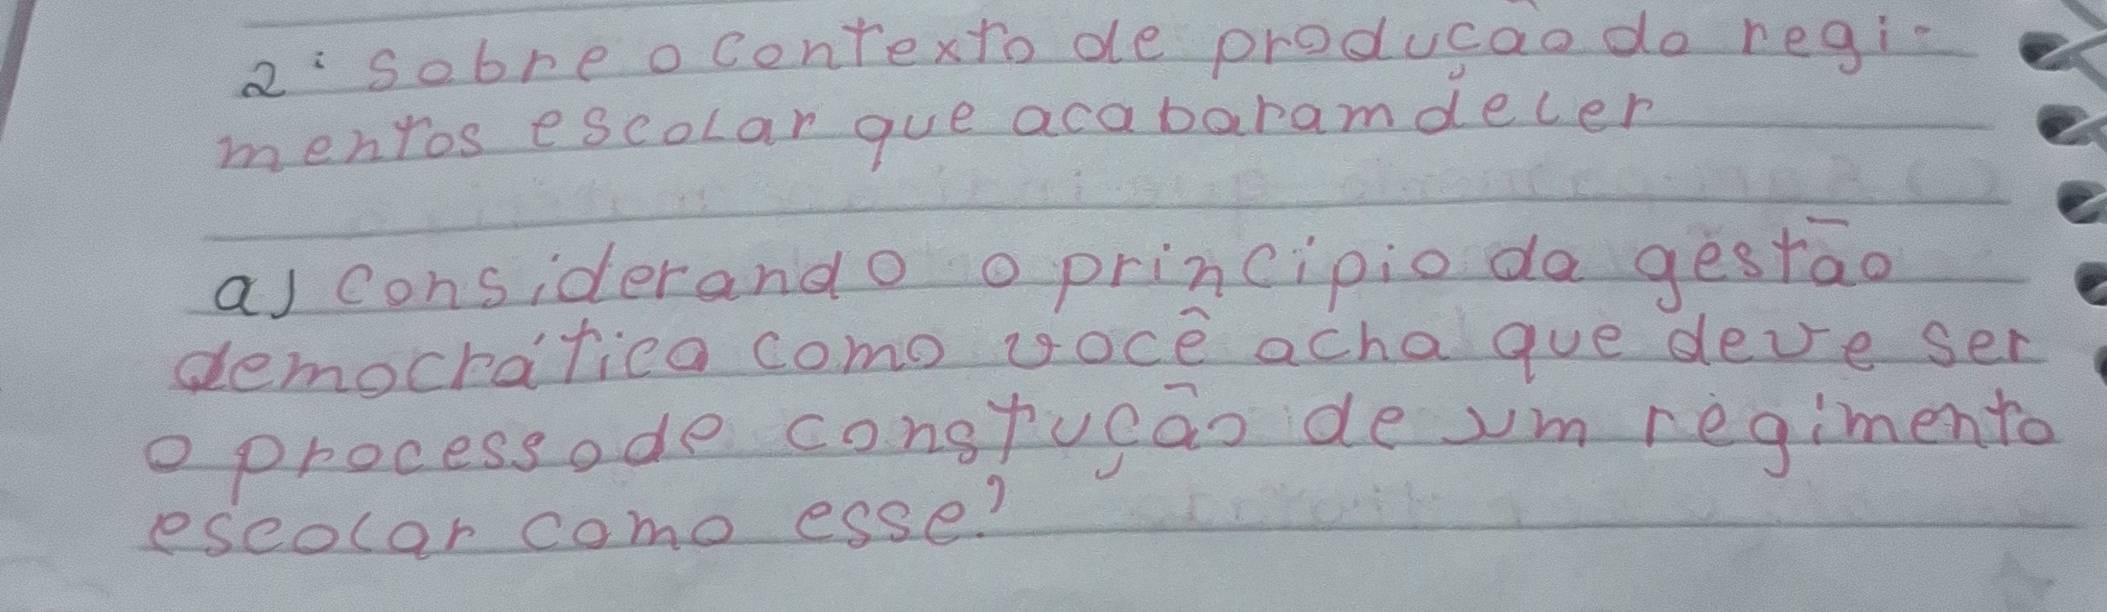 2: sobre o contexto de produção do regi-
mentos escolar que acabaram de ler
a) considerando o principio da gestão
democrática como você acha que deve ser
o processo de constução de um regimento
escolar como esse?